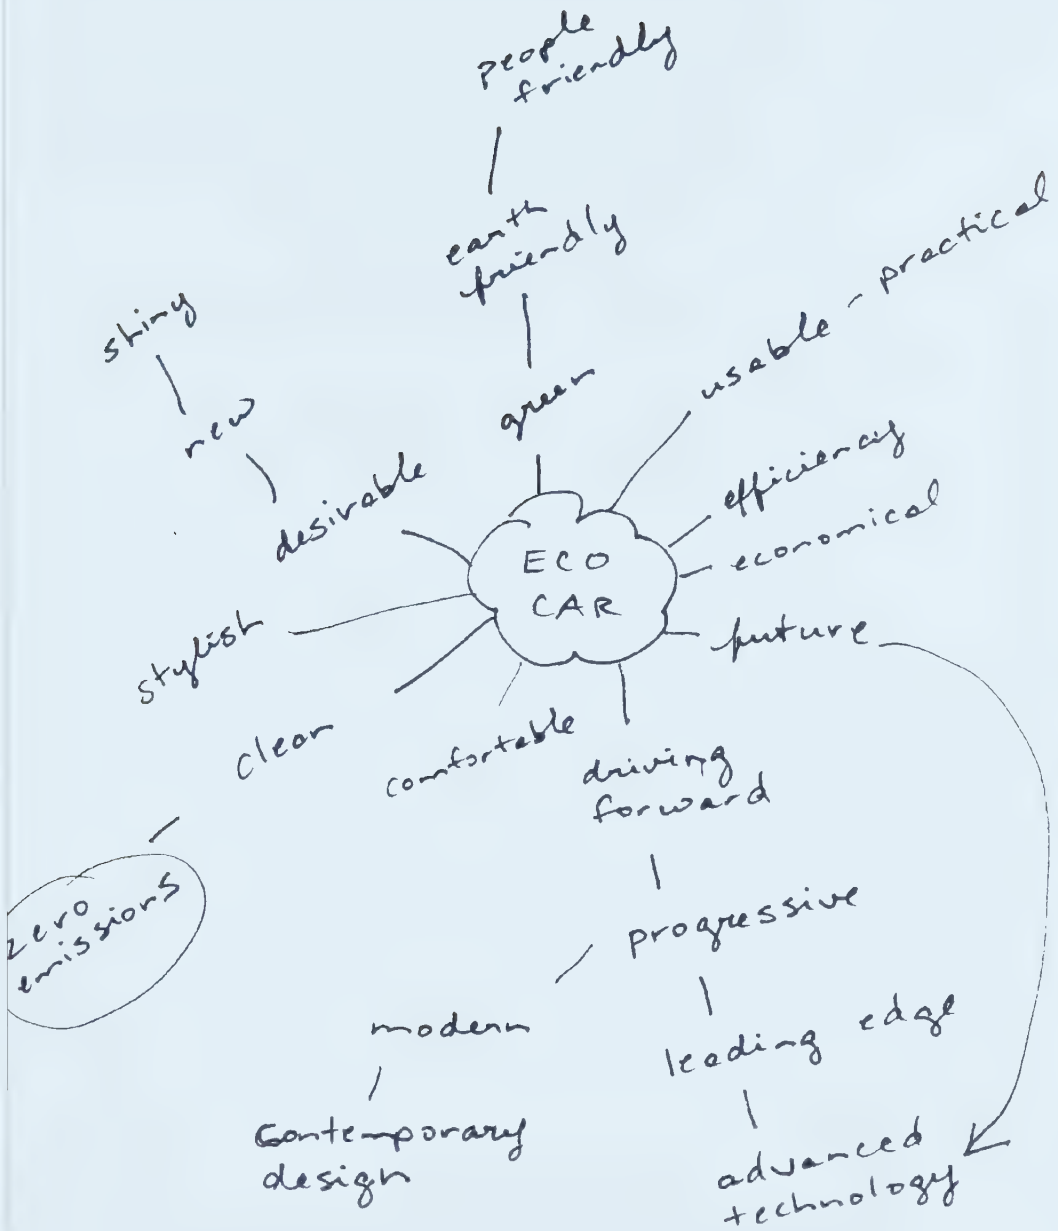 people
friendly
earth
friendly
usable - practical
shiny
new
green
desirable
efficiency
economical
ECO
CAR
future
stylish
clean
comfortable
driving
forward
zero
emissions
progressive
modern
leading edge
contemporary
design
advanced
technology